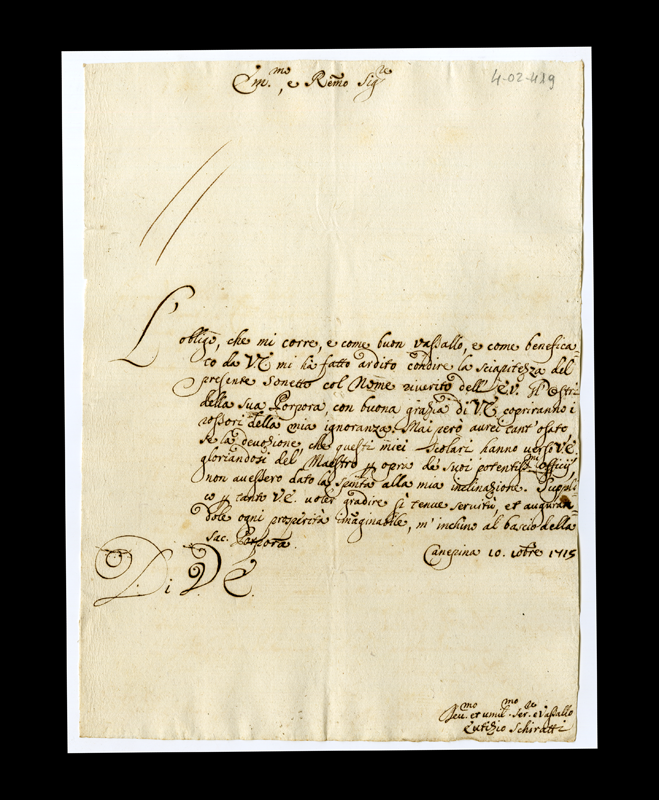 Em.mo, e Remo Sigre
4-02-419
L'obligo, che mi corre, e come buon vassallo, e come benefica=
to da VE mi hà fatto ardito condire la sciapitezza del
presente Sonetto col Nome riverito dell' E.V. Gl' Ostri
della sua Porpora con buona grazia di VE copriranno i
rossori della mia ignoranza. Mai però aurei tant' osato
se la devozione, che questi miei Scolari hanno verso VE
gloriandosi del Maestro p opra de suoi potentissmi officij
non avessero dato la spinta alla mia inclinazione. Suppli=
co p tanto VE. voler gradire sì tenue servitù, et auguran=
dole ogni prosperità imaginabile, m' inchino al bascio della
sac. Porpora.
Canepina 10. 10bre 1715
Di VE.
Deu.mo et umil.mo Ser.re e Vassallo
Eutizio Schiratti